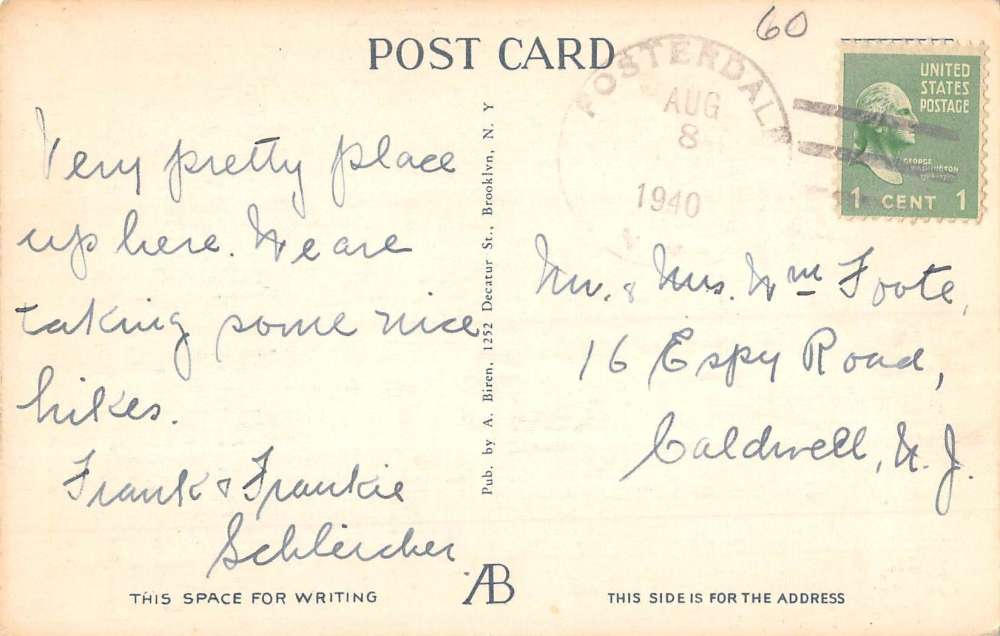 60
POST CARD
FOSTERDALE
AUG
8
1940
N. Y.
UNITED
STATES
POSTAGE
GEORGE
WASHINGTON
1 CENT 1
Very pretty place
up here. We are
taking some nice
hikes.
Frank & Frankie
Schleicher
Pub. by A. Biren, 1252 Decatur St., Brooklyn, N. Y
Mr. & Mrs. Wm Foote,
16 Espy Road,
Caldwell, N. J.
THIS SPACE FOR WRITING
AB
THIS SIDE IS FOR THE ADDRESS